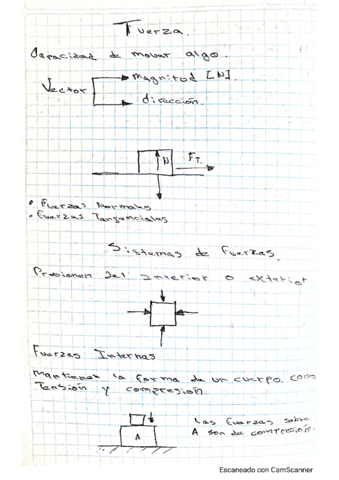 Fuerza.
Capacidad de mover algo.
magnitud [N].
Vector
dirección.
N
F T.
• Fuerzas Normales
• Fuerzas Tangenciales
Sistemas de Fuerzas.
Provienen del interior o exterior
Fuerzas Internas
Mantienen la forma de un cuerpo, como
Tensión y compresión.
las fuerzas sobre
A son de compresión.
A
Escaneado con CamScanner